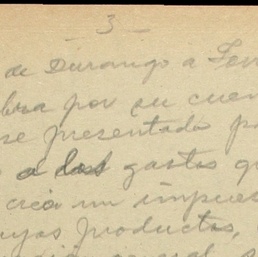 - 3 -
de Durango a
bra por su cuen
se presentado p
a los gastos q
creó un impues
uyos productos,